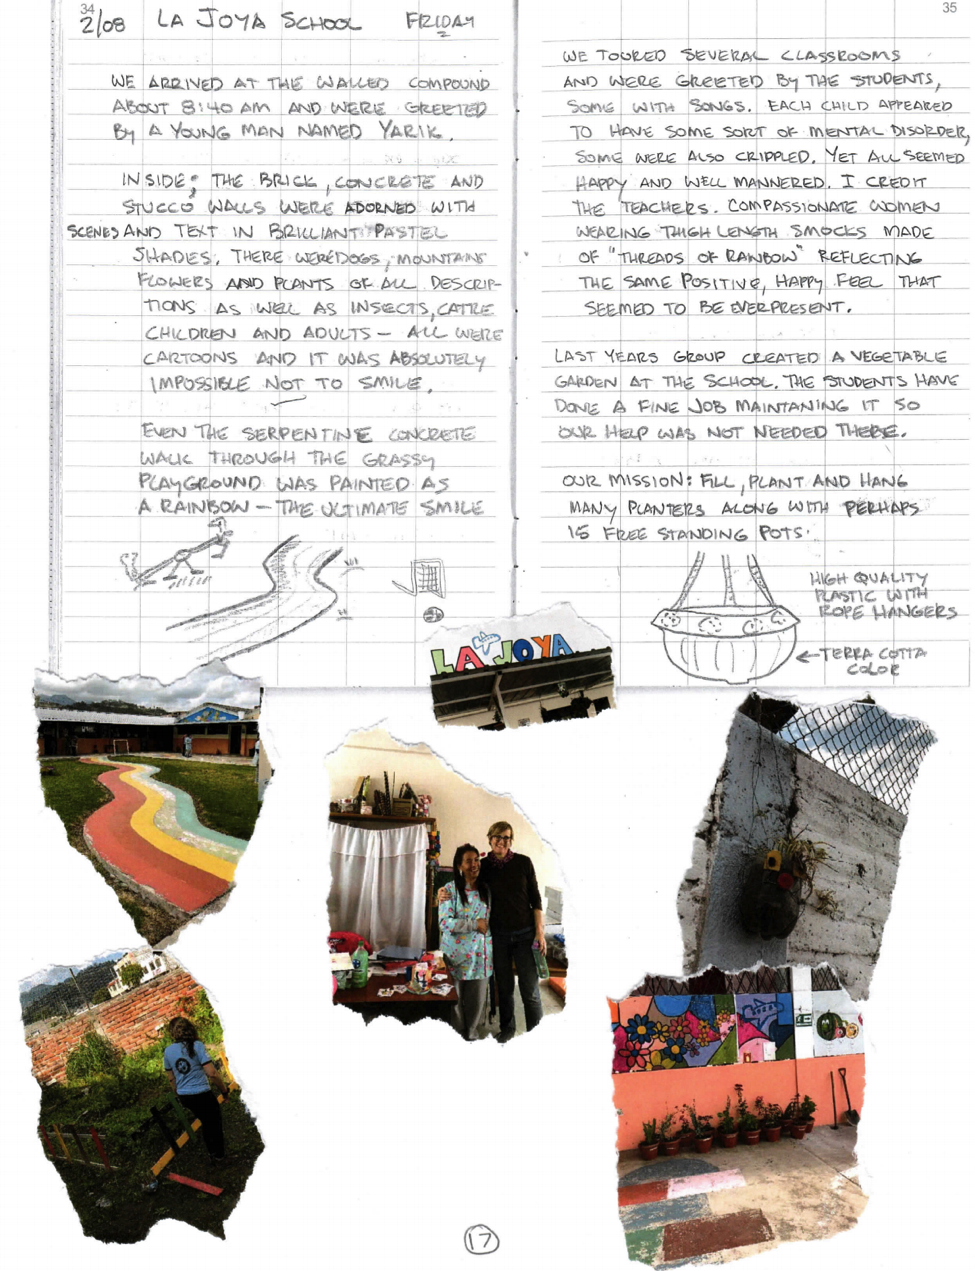 34
2/08 LA JOYA SCHOOL FRIDAY
WE ARRIVED AT THE WALLED COMPOUND
ABOUT 8:40 AM AND WERE GREETED
BY A YOUNG MAN NAMED YARIK.
INSIDE; THE BRICK, CONCRETE AND
STUCCO WALLS WERE ADORNED WITH
SCENES AND TEXT IN BRILLIANT PASTEL
SHADES. THERE WERE DOGS, MOUNTAINS
FLOWERS AND PLANTS OF ALL DESCRIP-
TIONS AS WELL AS INSECTS, CATTLE
CHILDREN AND ADULTS – ALL WERE
CARTOONS AND IT WAS ABSOLUTELY
IMPOSSIBLE NOT TO SMILE.
EVEN THE SERPENTINE CONCRETE
WALK THROUGH THE GRASSY
PLAYGROUND WAS PAINTED AS
A RAINBOW – THE ULTIMATE SMILE
35
WE TOURED SEVERAL CLASSROOMS
AND WERE GREETED BY THE STUDENTS,
SOME WITH SONGS. EACH CHILD APPEARED
TO HAVE SOME SORT OF MENTAL DISORDER,
SOME WERE ALSO CRIPPLED. YET ALL SEEMED
HAPPY AND WELL MANNERED. I CREDIT
THE TEACHERS. COMPASSIONATE WOMEN
WEARING THIGH LENGTH SMOCKS MADE
OF "THREADS OF RAINBOW" REFLECTING
THE SAME POSITIVE, HAPPY FEEL THAT
SEEMED TO BE EVERPRESENT.
LAST YEARS GROUP CREATED A VEGETABLE
GARDEN AT THE SCHOOL. THE STUDENTS HAVE
DONE A FINE JOB MAINTANING IT SO
OUR HELP WAS NOT NEEDED THERE.
OUR MISSION: FILL, PLANT AND HANG
MANY PLANTERS ALONG WITH PERHAPS
15 FREE STANDING POTS.
HIGH QUALITY
PLASTIC WITH
ROPE HANGERS
TERRA COTTA
COLOR
LA JOYA
17